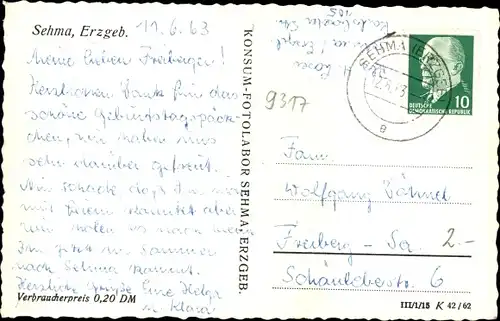 Sehma, Erzgeb.
11.6.63
Meine lieben Freiberger!
Herzlichen Dank für das
schöne Geburtstagspäck-
chen, wir haben uns
sehr darüber gefreut.
Nur schade daß
mit
wir holen es nach wenn
Ihr jetzt im Sommer
nach Sehma kommt.
Herzliche Grüße Eure Helga
Verbraucherpreis 0,20 DM
KONSUM-FOTOLABOR SEHMA, ERZGEB.
9317
SEHMA (ERZGEB)
a
10
DEUTSCHE
DEMOKRATISCHE REPUBLIK
Fam.
Wolfgang
Freiberg - Sa.
2.-
6
III/1/18 K 42/62